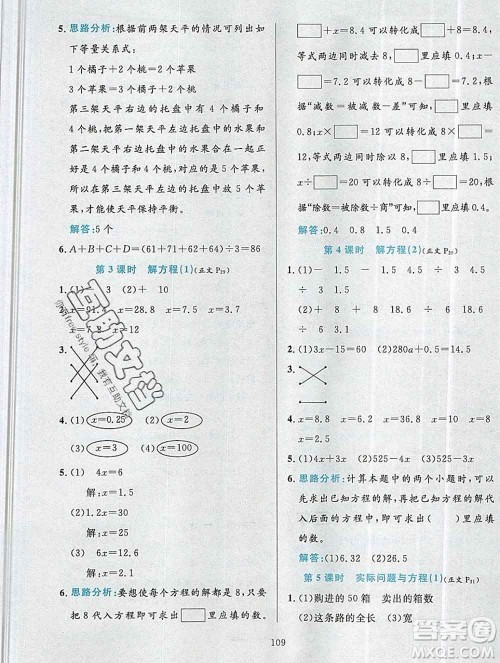 5. 思路分析:根据前两架天平的情况可列出如
下等量关系式:
1个橘子+2个桃=2个苹果
4个橘子+1个桃=3个苹果
第三架天平右边的托盘中有1个橘子和
1个桃,第三架天平左边托盘中的水果和
第二架天平左边托盘中的水果合在一起正
好是4个橘子和1个桃,对应的是5个苹果,
所以第三架天平左边的托盘中有5个苹果
才能使天平保持平衡。
解答:5个
6. A+B+C+D=(61+67+71+59)÷3=86
第3课时 解方程(1)(正文P29)
1. (1)3 (2)+ 10
2. x=91 x=28.8 x=18 x=9.8
x=7.3 x=12
3.
4. (1)x=0.25 (2)x=2
(3)x=3 (4)x=100
5. (1) 4x=6
解:x=1.5
(2)1.2x=3
解:x=2.5
(3) 6x=12.6
解:x=2.1
6. 思路分析:要想使每个方程的解都是8,只要
把8代入方程就可以求出□里应填的数。
□+x=8.4可以转化成□+8=8.4,
等式两边同时减8,□里应填0.4;
x·□=7.2可以转化成8-□=7.2,根
据“减数=被减数-差”可知,□里应填
0.8;x·□=12可以转化成8×□=12,
等式两边同时除以8,□里应填1.5;
x÷□=20可以转化成8÷□=20,根
据“除数=被除数÷商”可知,□里应填
0.4。
解答:0.4 0.8 1.5 0.4
第4课时 解方程(2)(正文P30)
1. (1)- 1.5 - 1.5 ÷ 3 ÷ 3
1.5
(2)+ 8 + 8 18.6 ÷ 6 ÷ 6
3.1
2. (1)3x-15=60 (2)280a+0.5=14.5
3.
4. x=8.8 x=2.4 x=6.3 x=8.8
5. (1)4x+3x (2)525-3x (3)525÷x
6. 思路分析:计算本题中的两个小题时,可以
先求出已知方程的解,再把求出的方程的解代
入后面的方程中,即可求出( )里应填
的数。
解答:(1)6.32 (2)26.5
第5课时 实际问题与方程(1)(正文P31)
1. (1)购进的50箱 卖出的箱数
(2)这条路的全长 宽
109
答案圈
MXQE.COM